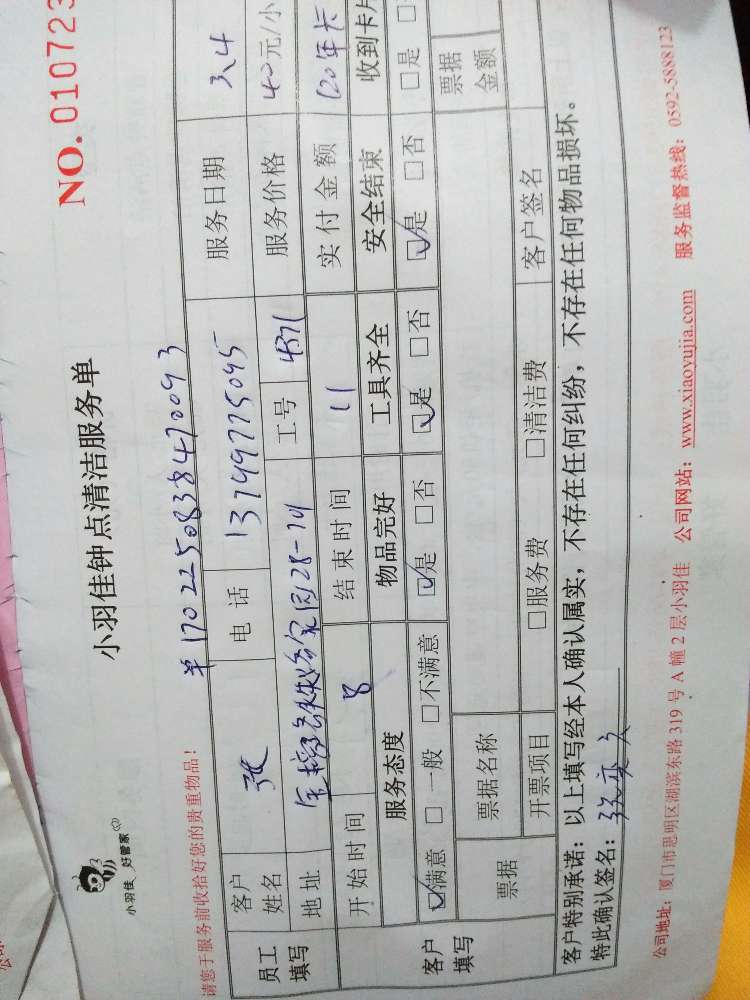 小羽佳 好管家
小羽佳钟点清洁服务单
NO. 010723
请您于服务前收拾好您的贵重物品！
单1702250838470093
员工填写 客户姓名 张 电话 13749775045 服务日期 3.4
地址 28-701 工号 4371 服务价格 40元/小
开始时间 8 结束时间 11 实付金额 120年卡
客户填写 服务态度 物品完好 工具齐全 安全结束 收到卡片
☑满意 □一般 □不满意 ☑是 □否 ☑是 □否 ☑是 □否 □是
票据 票据名称 票据金额
开票项目 □服务费 □清洁费 客户签名
客户特别承诺：以上填写经本人确认属实，不存在任何纠纷，不存在任何物品损坏。
特此确认签名：
公司地址：厦门市思明区湖滨东路319号A幢2层小羽佳 公司网站：www.xiaoyujia.com 服务监督热线：0592-5888123